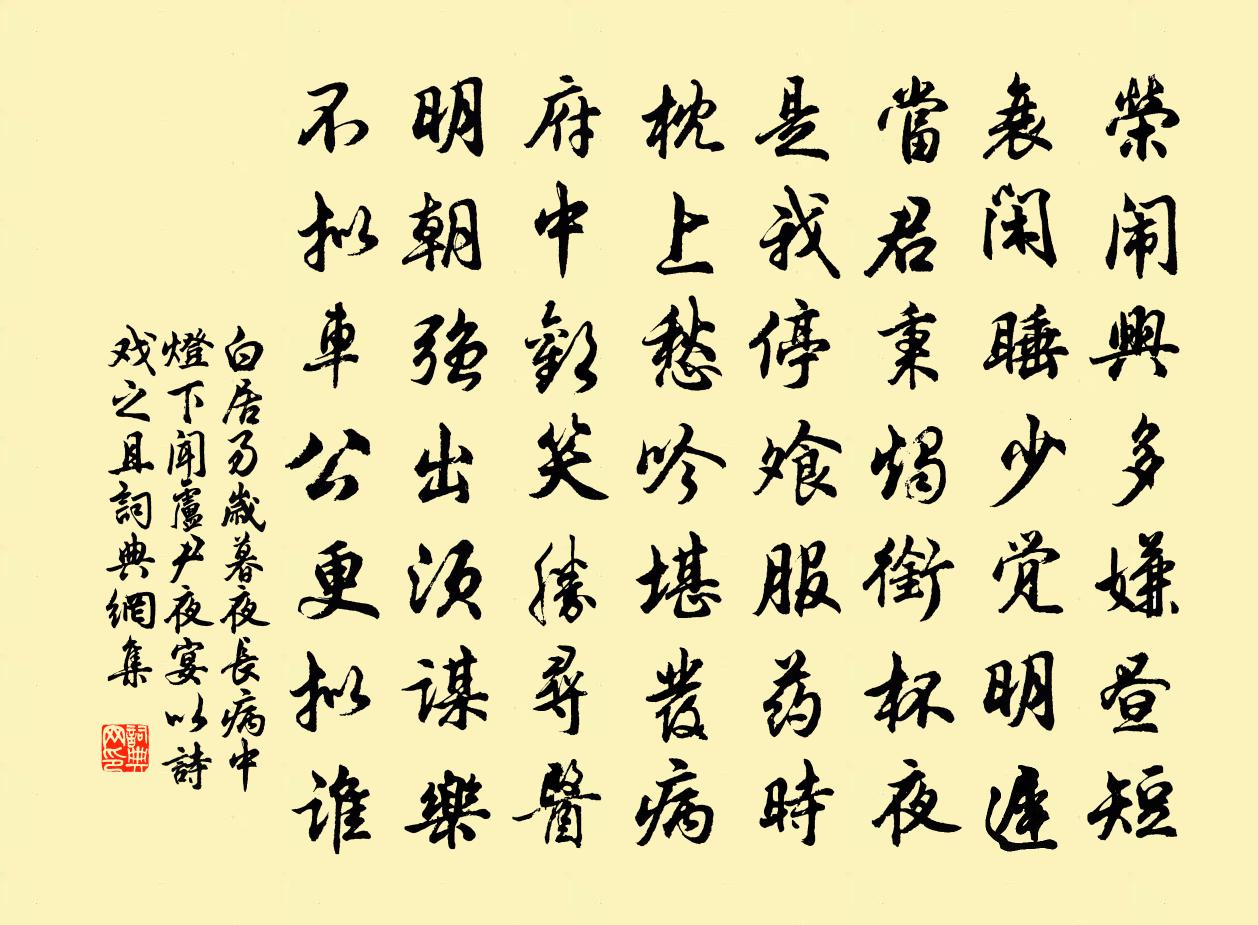 榮闹興多嫌昼短
衰闲睡少覚明遅
當君秉燭銜杯夜
是我停飧服药時
枕上愁吟堪發病
府中歡笑勝尋醫
明朝强出須謀樂
不拟車公更拟谁
白居易歲暮夜長病中
燈下聞盧尹夜宴以詩
戏之且詞典網集
詞典
网印